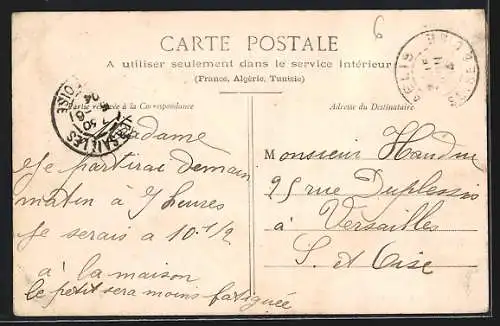 CARTE POSTALE
A utiliser seulement dans le service Intérieur
(France, Algérie, Tunisie)
Partie réservée à la Correspondance
Adresse du Destinataire
6
VERSAILLES
7 30
Madame
Je partirai demain
matin à 7 heures
Je serais a 10.1/2
à la maison
le petit sera moins fatiguée
Monsieur
25 rue Duplessis
à Versailles
S. et Oise